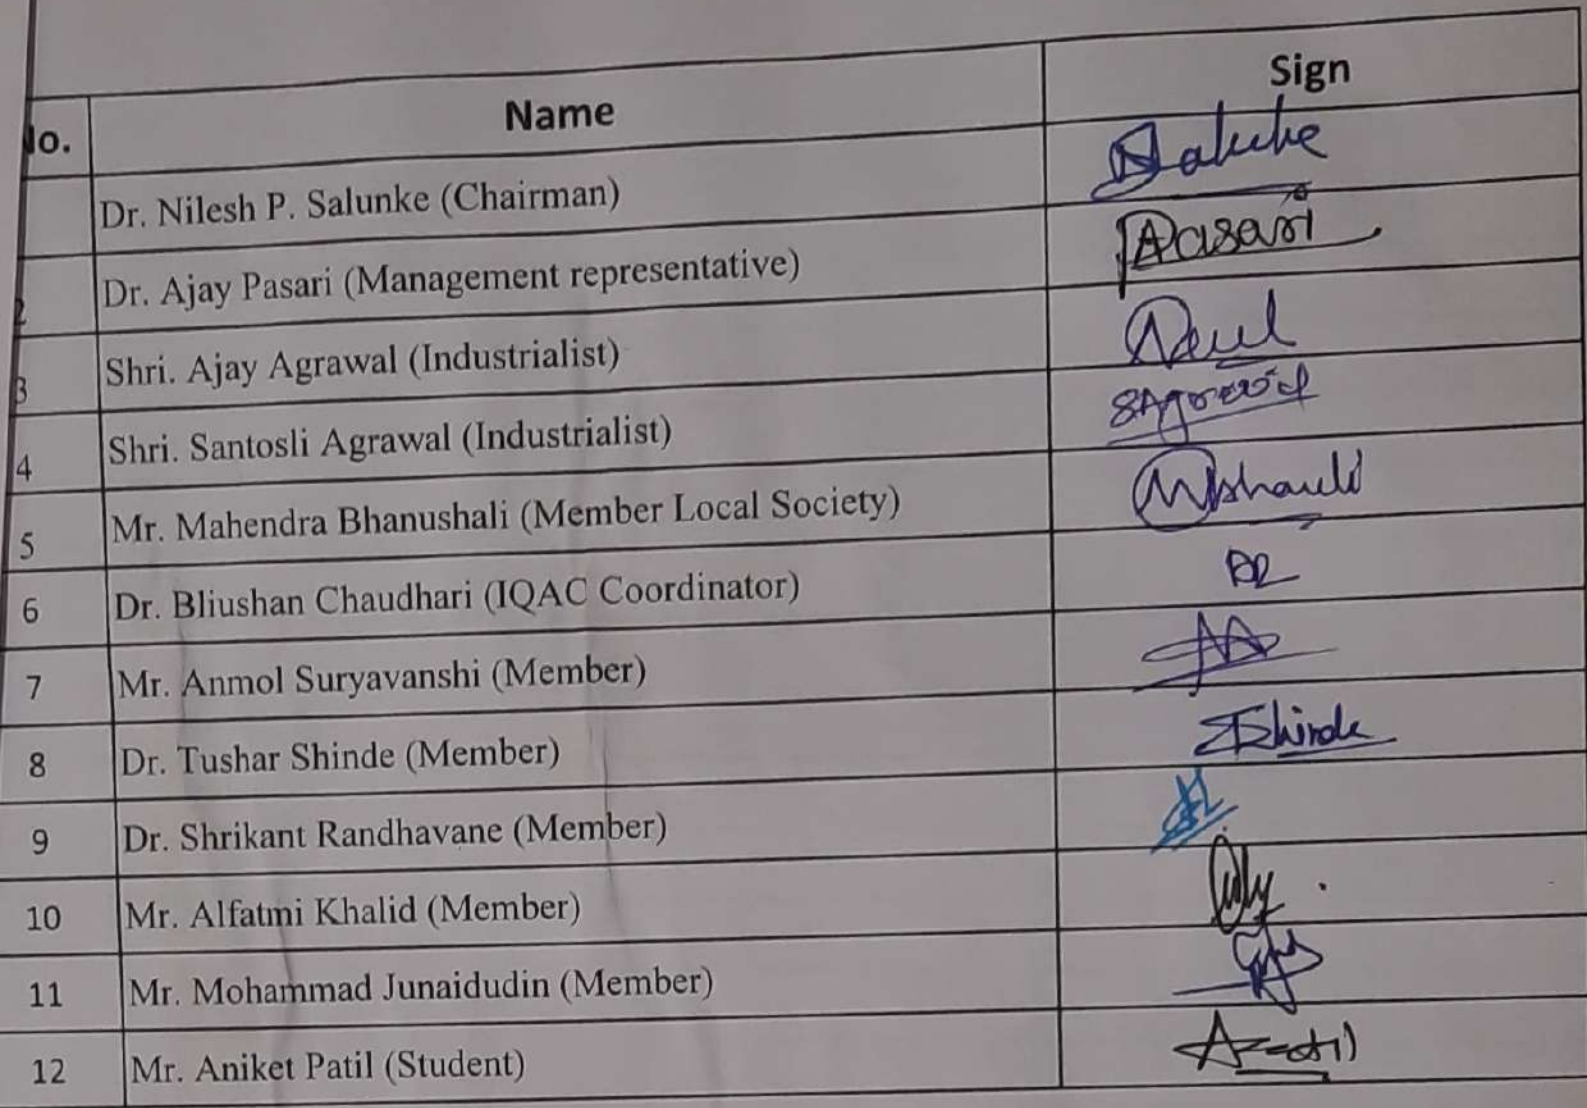 No. Name Sign
Dr. Nilesh P. Salunke (Chairman) Salunke
2 Dr. Ajay Pasari (Management representative) APasari
3 Shri. Ajay Agrawal (Industrialist)
4 Shri. Santosli Agrawal (Industrialist) SAgrawal
5 Mr. Mahendra Bhanushali (Member Local Society)
6 Dr. Bliushan Chaudhari (IQAC Coordinator)
7 Mr. Anmol Suryavanshi (Member)
8 Dr. Tushar Shinde (Member) TShinde
9 Dr. Shrikant Randhavane (Member)
10 Mr. Alfatmi Khalid (Member)
11 Mr. Mohammad Junaidudin (Member)
12 Mr. Aniket Patil (Student)